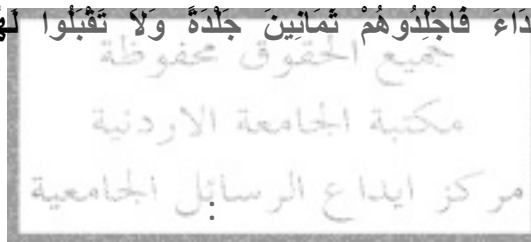 دَاءَ فَاجْلِدُوهُمْ ثَمَانِينَ جَلْدَةً وَلَا تَقْبَلُوا
جميع الحقوق محفوظة
مكتبة الجامعة الاردنية
مركز ايداع الرسائل الجامعية
: